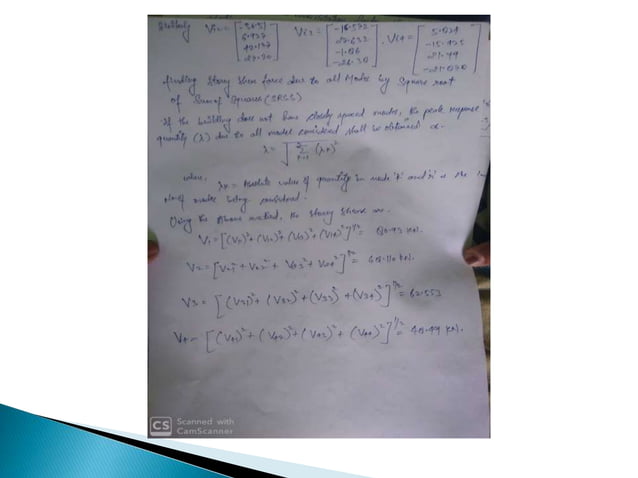 Similarly Vi2 = [ -36.51 6.927 42.137 27.90 ] Vi3 = [ -16.572 27.633 -1.06 -26.30 ] , Vi4 = [ 5.024 -15.425 21.49 -21.070 ]
finding Story Shear force due to all Modes by Square root
of Sum of Squares (SRSS)
If the building does not have closely spaced modes, the peak response
quantity (λ) due to all modes considered shall be obtained as.
λ = √ Σ (λk)²
where,
λk = Absolute value of quantity in mode 'k' and 'r' is the
of modes being considered.
Using the Above method, the storey shears are.
V1 = [(V11)² + (V12)² + (V13)² + (V14)²]^1/2 = KN.
V2 = [V21² + V22² + V23² + V24²]^1/2 = KN.
V3 = [(V31)² + (V32)² + (V33)² + (V34)²]^1/2 = 62.553
V4 = [(V41)² + (V42)² + (V43)² + (V44)²]^1/2 = KN.
CS Scanned with
CamScanner